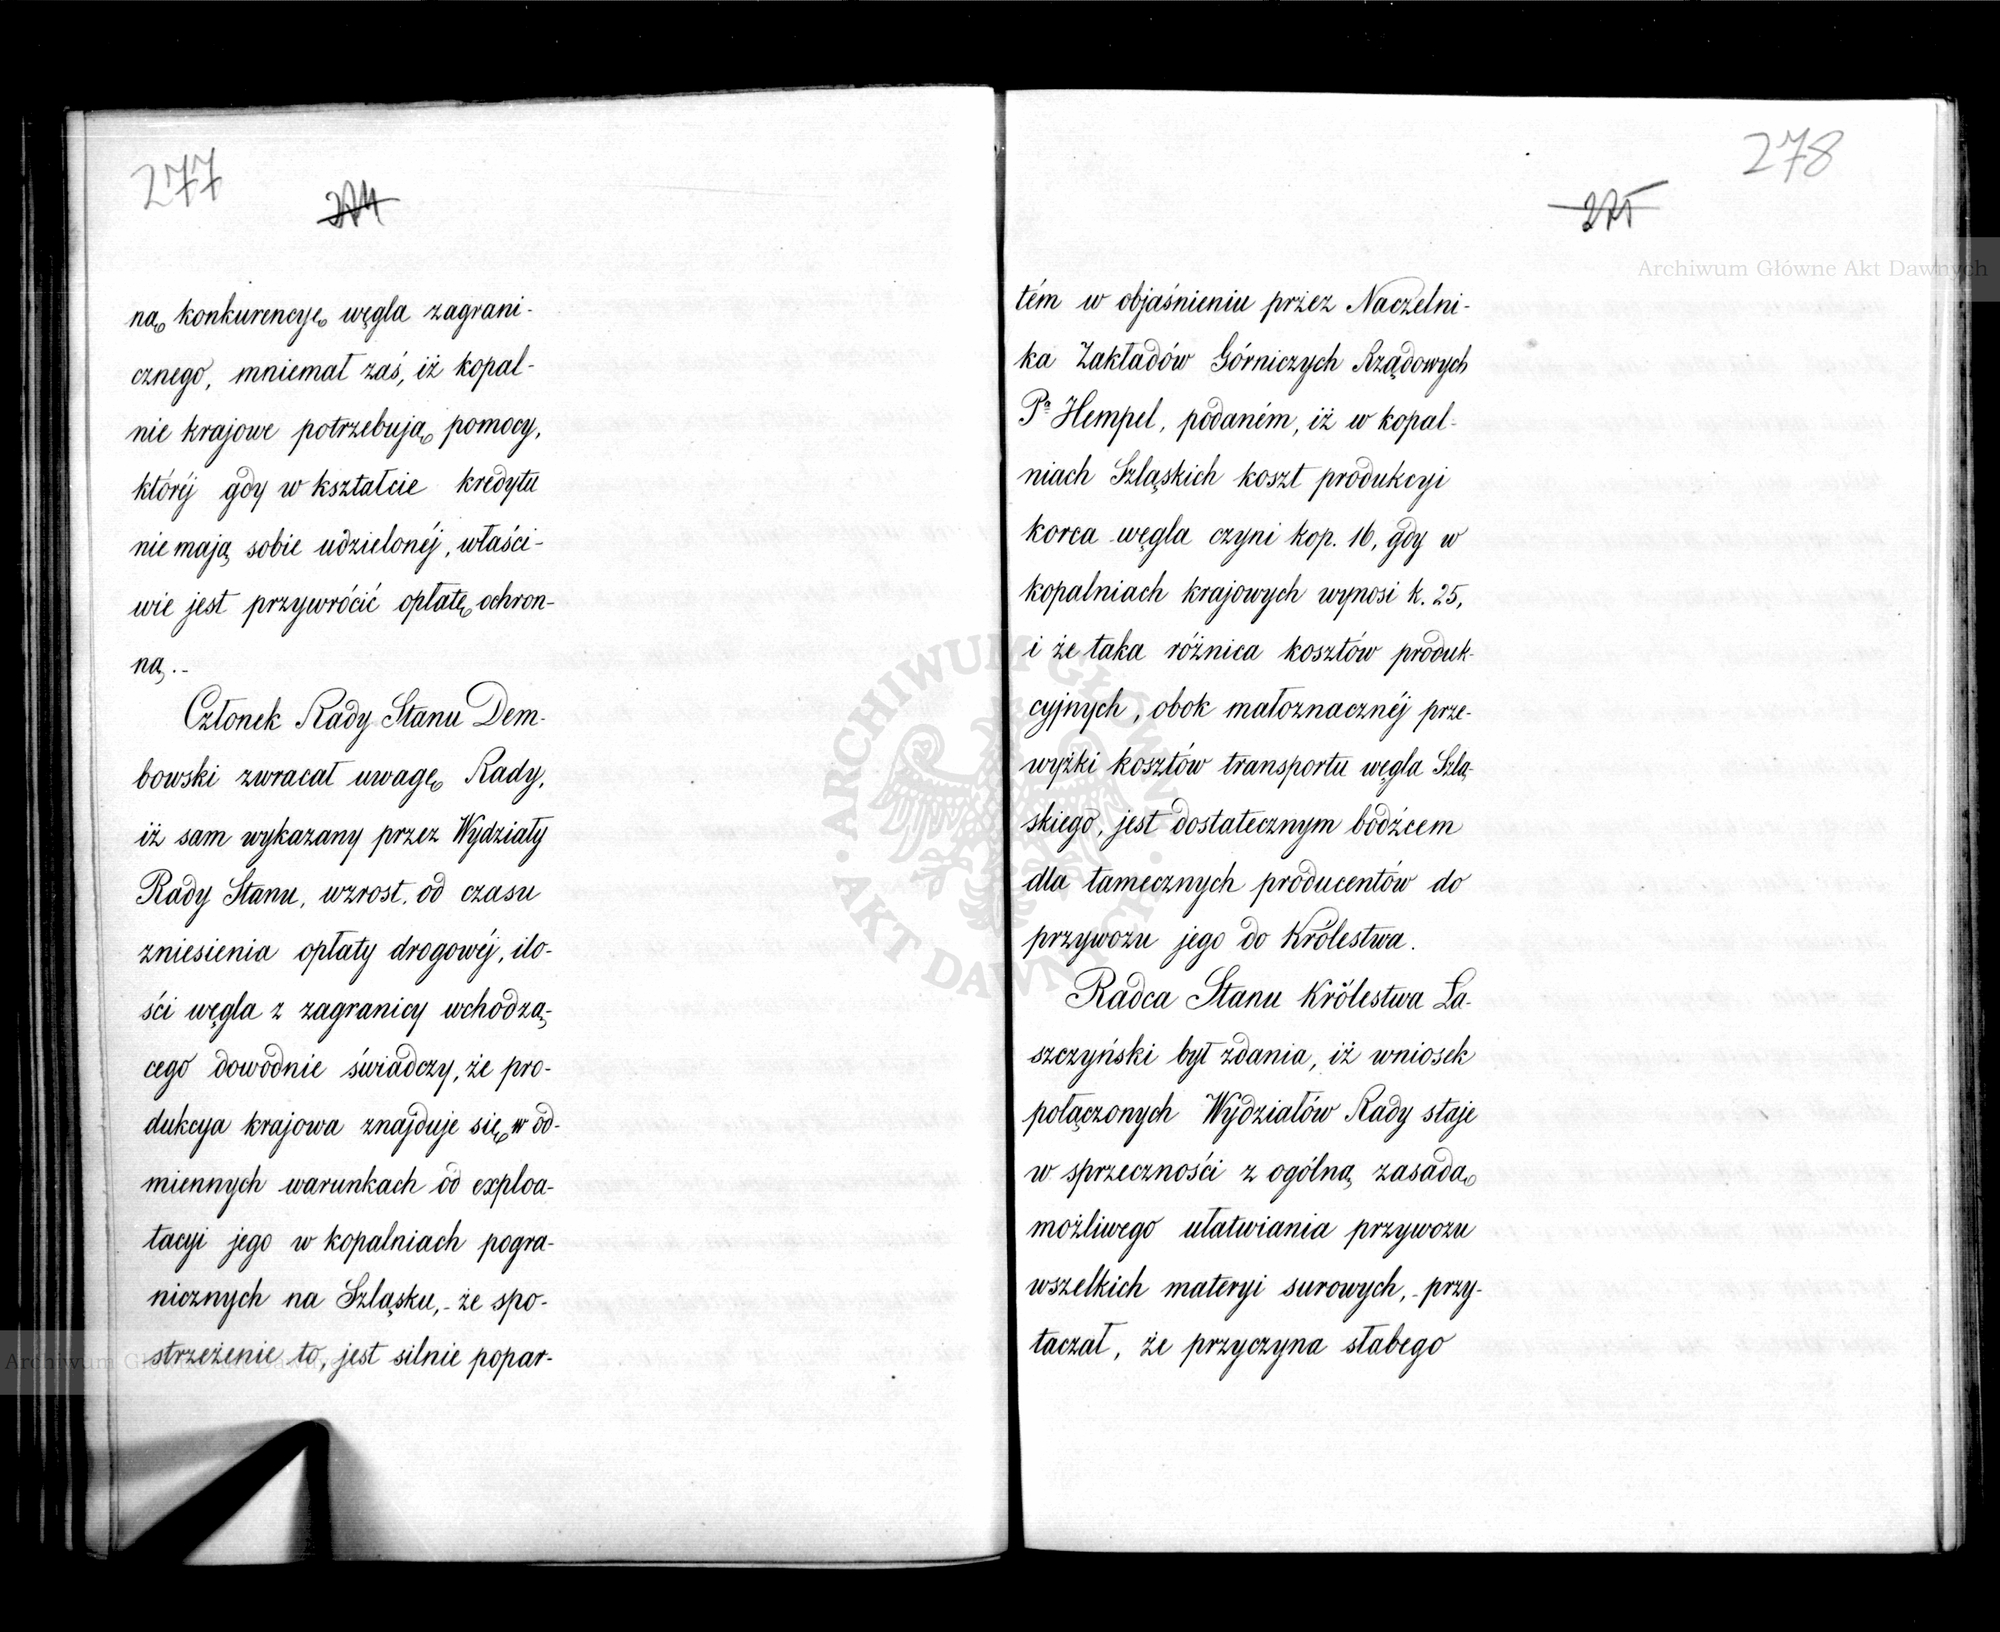 277
274
ną konkurencyę węgla zagrani-
cznego, mniemał zaś, iż kopal-
nie krajowe potrzebują pomocy,
któréj gdy w kształcie kredytu
nie mają sobie udzielonéj, właści-
wie jest przywrócić opłatę ochron-
ną.-
Członek Rady Stanu Dem-
bowski zwracał uwagę Rady,
iż sam wykazany przez Wydziały
Rady Stanu, wzrost, od czasu
zniesienia opłaty drogowéj, ilo-
ści węgla z zagranicy wchodzą-
cego dowodnie świadczy, że pro-
dukcya krajowa znajduje się w od-
miennych warunkach od exploa-
tacyi jego w kopalniach pogra-
nicznych na Szląsku,- że spo-
strzeżenie to, jest silnie popar-
278
275
tém w objaśnieniu przez Naczelni-
ka Zakładów Górniczych Rządowych
Pa Hempel, podaném, iż w kopal-
niach Szląskich koszt produkcyi
korca węgla czyni kop. 16, gdy w
kopalniach krajowych wynosi k. 25,
i że taka różnica kosztów produk-
cyjnych, obok małoznacznéj prze-
wyżki kosztów transportu węgla Szlą-
skiego, jest dostatecznym bodźcem
dla tamecznych producentów do
przywozu jego do Królestwa.
Radca Stanu Królestwa Ła-
szczyński był zdania, iż wniosek
połączonych Wydziałów Rady staje
w sprzeczności z ogólną zasadą
możliwego ułatwiania przywozu
wszelkich materyi surowych,- przy-
taczał, że przyczyna słabego
Archiwum Główne Akt Dawnych
ARCHIWUM GŁÓWNE
AKT DAWNYCH
Archiwum Główne Akt Dawnych